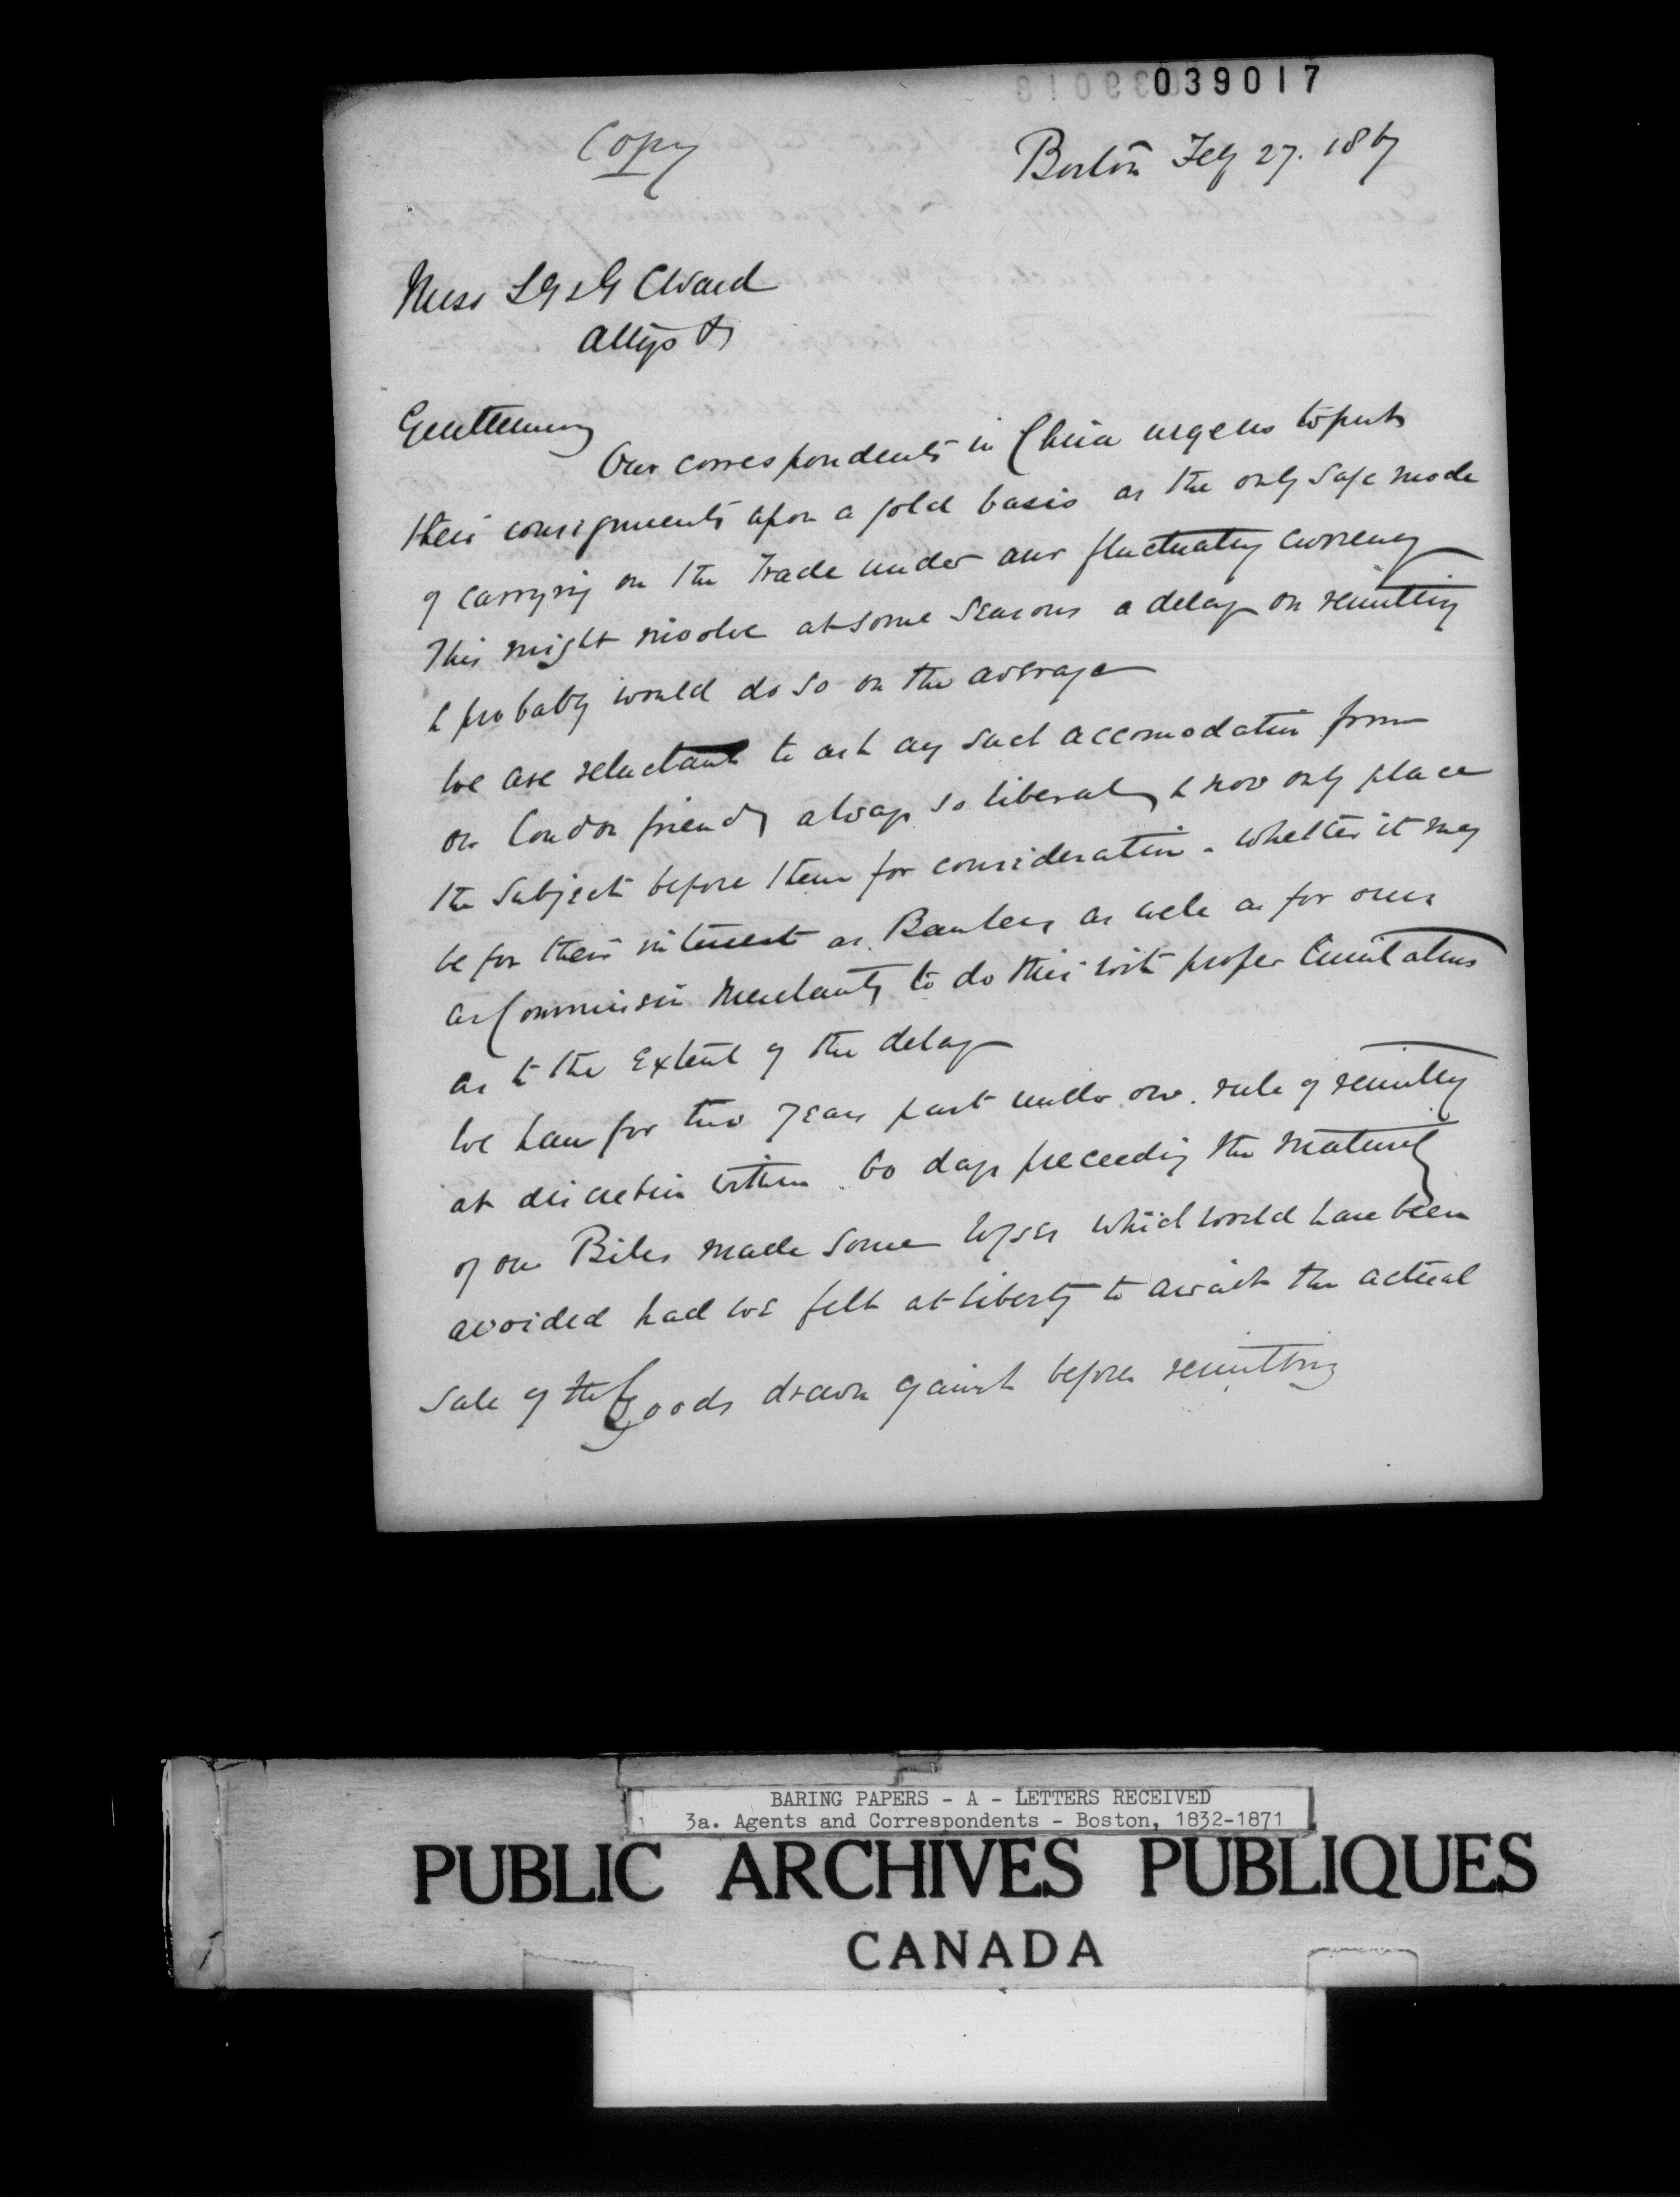 039017
Copy
Boston Feby 27. 1867
Mess S G & G C Ward
Attys &
Gentlemen
Our correspondents in China urge us to put
their consignments upon a gold basis as the only safe mode
of carrying on the Trade under our fluctuating currency
This might involve at some seasons a delay on remitting
& probably would do so on the average
We are reluctant to ask any such accomodation from
our London friends always so liberal, & now only place
the subject before them for consideration - whether it may
be for their interest as Bankers as well as for ours
as Commission Merchants to do this with proper limitations
as to the extent of the delay
We have for two years past under our rule of remitting
at discretion within 60 days preceeding the maturity
of our Bills made some losses which would have been
avoided had we felt at liberty to await the actual
sale of the Goods drawn against before remitting
BARING PAPERS - A - LETTERS RECEIVED
3a. Agents and Correspondents - Boston, 1832-1871
PUBLIC ARCHIVES PUBLIQUES
CANADA